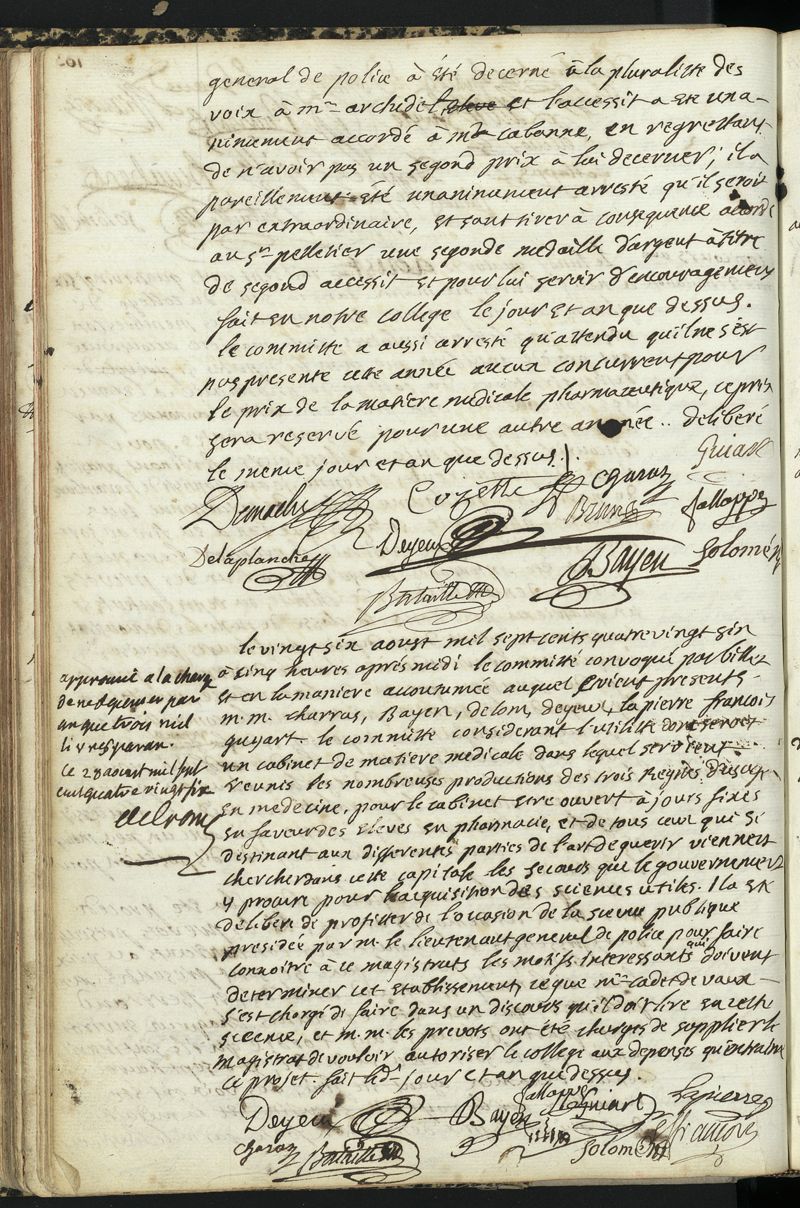 general de police à été decerné à la pluralitté des
voix à mr archidet et l'accessit a eté una-
ninement accordé à mr cabanne, en regrettant
de n'avoir pas un segond prix à lui decerner; il a
pareillement été unaninument arresté qu'il seroit
par extraordinaire, et sant tirer à consequence accordé
au sr pelletier une segonde medaille d'argent à titre
de segond accessit et pour lui servir d'encouragement
fait en notre college le jour et an que dessus.
le committe a aussi arresté qu'attendu qu'il ne s'est
pas presente cette année aucun concurrent pour
le prix de la matiere medicale pharmaceutique, ce prix
sera reservé pour une autre année.. deliberé
le meme jour et an que dessus.
Guiart
Demachy Cozette Charas
Brun Jalloppy
Delaplanche Deyeux Bayen Solomé
Bataille
le vingt six aoust mil sept cents quatrevingt six
à cinq heures après midi le committé convoqué par billet
et en la maniere accoutumée auquel etoient presents
m.m. charras, Bayen, delom, deyeux, lapierre francois
guyart. le committe considerant l'utilitté
un cabinet de matiere medicale dans lequel seroient
reunis les nombreuses productions des trois Regnes d'usage
en medecine, pour le cabinet etre ouvert à jours fixés
en faveur des eleves en pharmacie, et de tous ceux qui se
destinant aux differentes parties de l'art de guerir viennent
chercher dans cette capitale les secours que le gouvernement
y procure pour l'acquisition des sciences utiles. Il a eté
deliberé de profitter de l'occasion de la sceence publique
presidée par m. le lieutenant general de police pour faire
connoitre à ce magistrats les motifs interessants qui doivent
determiner cet etablissement, ce que mr cadet de vaux
s'est chargé de faire dans un discours qu'il doit lire en cette
sceence, et m.m. les prevots ont été chargés de supplier le
magistrat de vouloir autoriser le college aux depenses qu'entraine
ce projet. fait led. jour et an que dessus.
approuvé a la charge
de ne depenser par
an que trois mil
livres par an.
ce 28 aoust mil sept
cent quatre vingt six
Jalloppy Lapierre
Deyeux Bayen Guiart francois
Charas Bataille Solomé